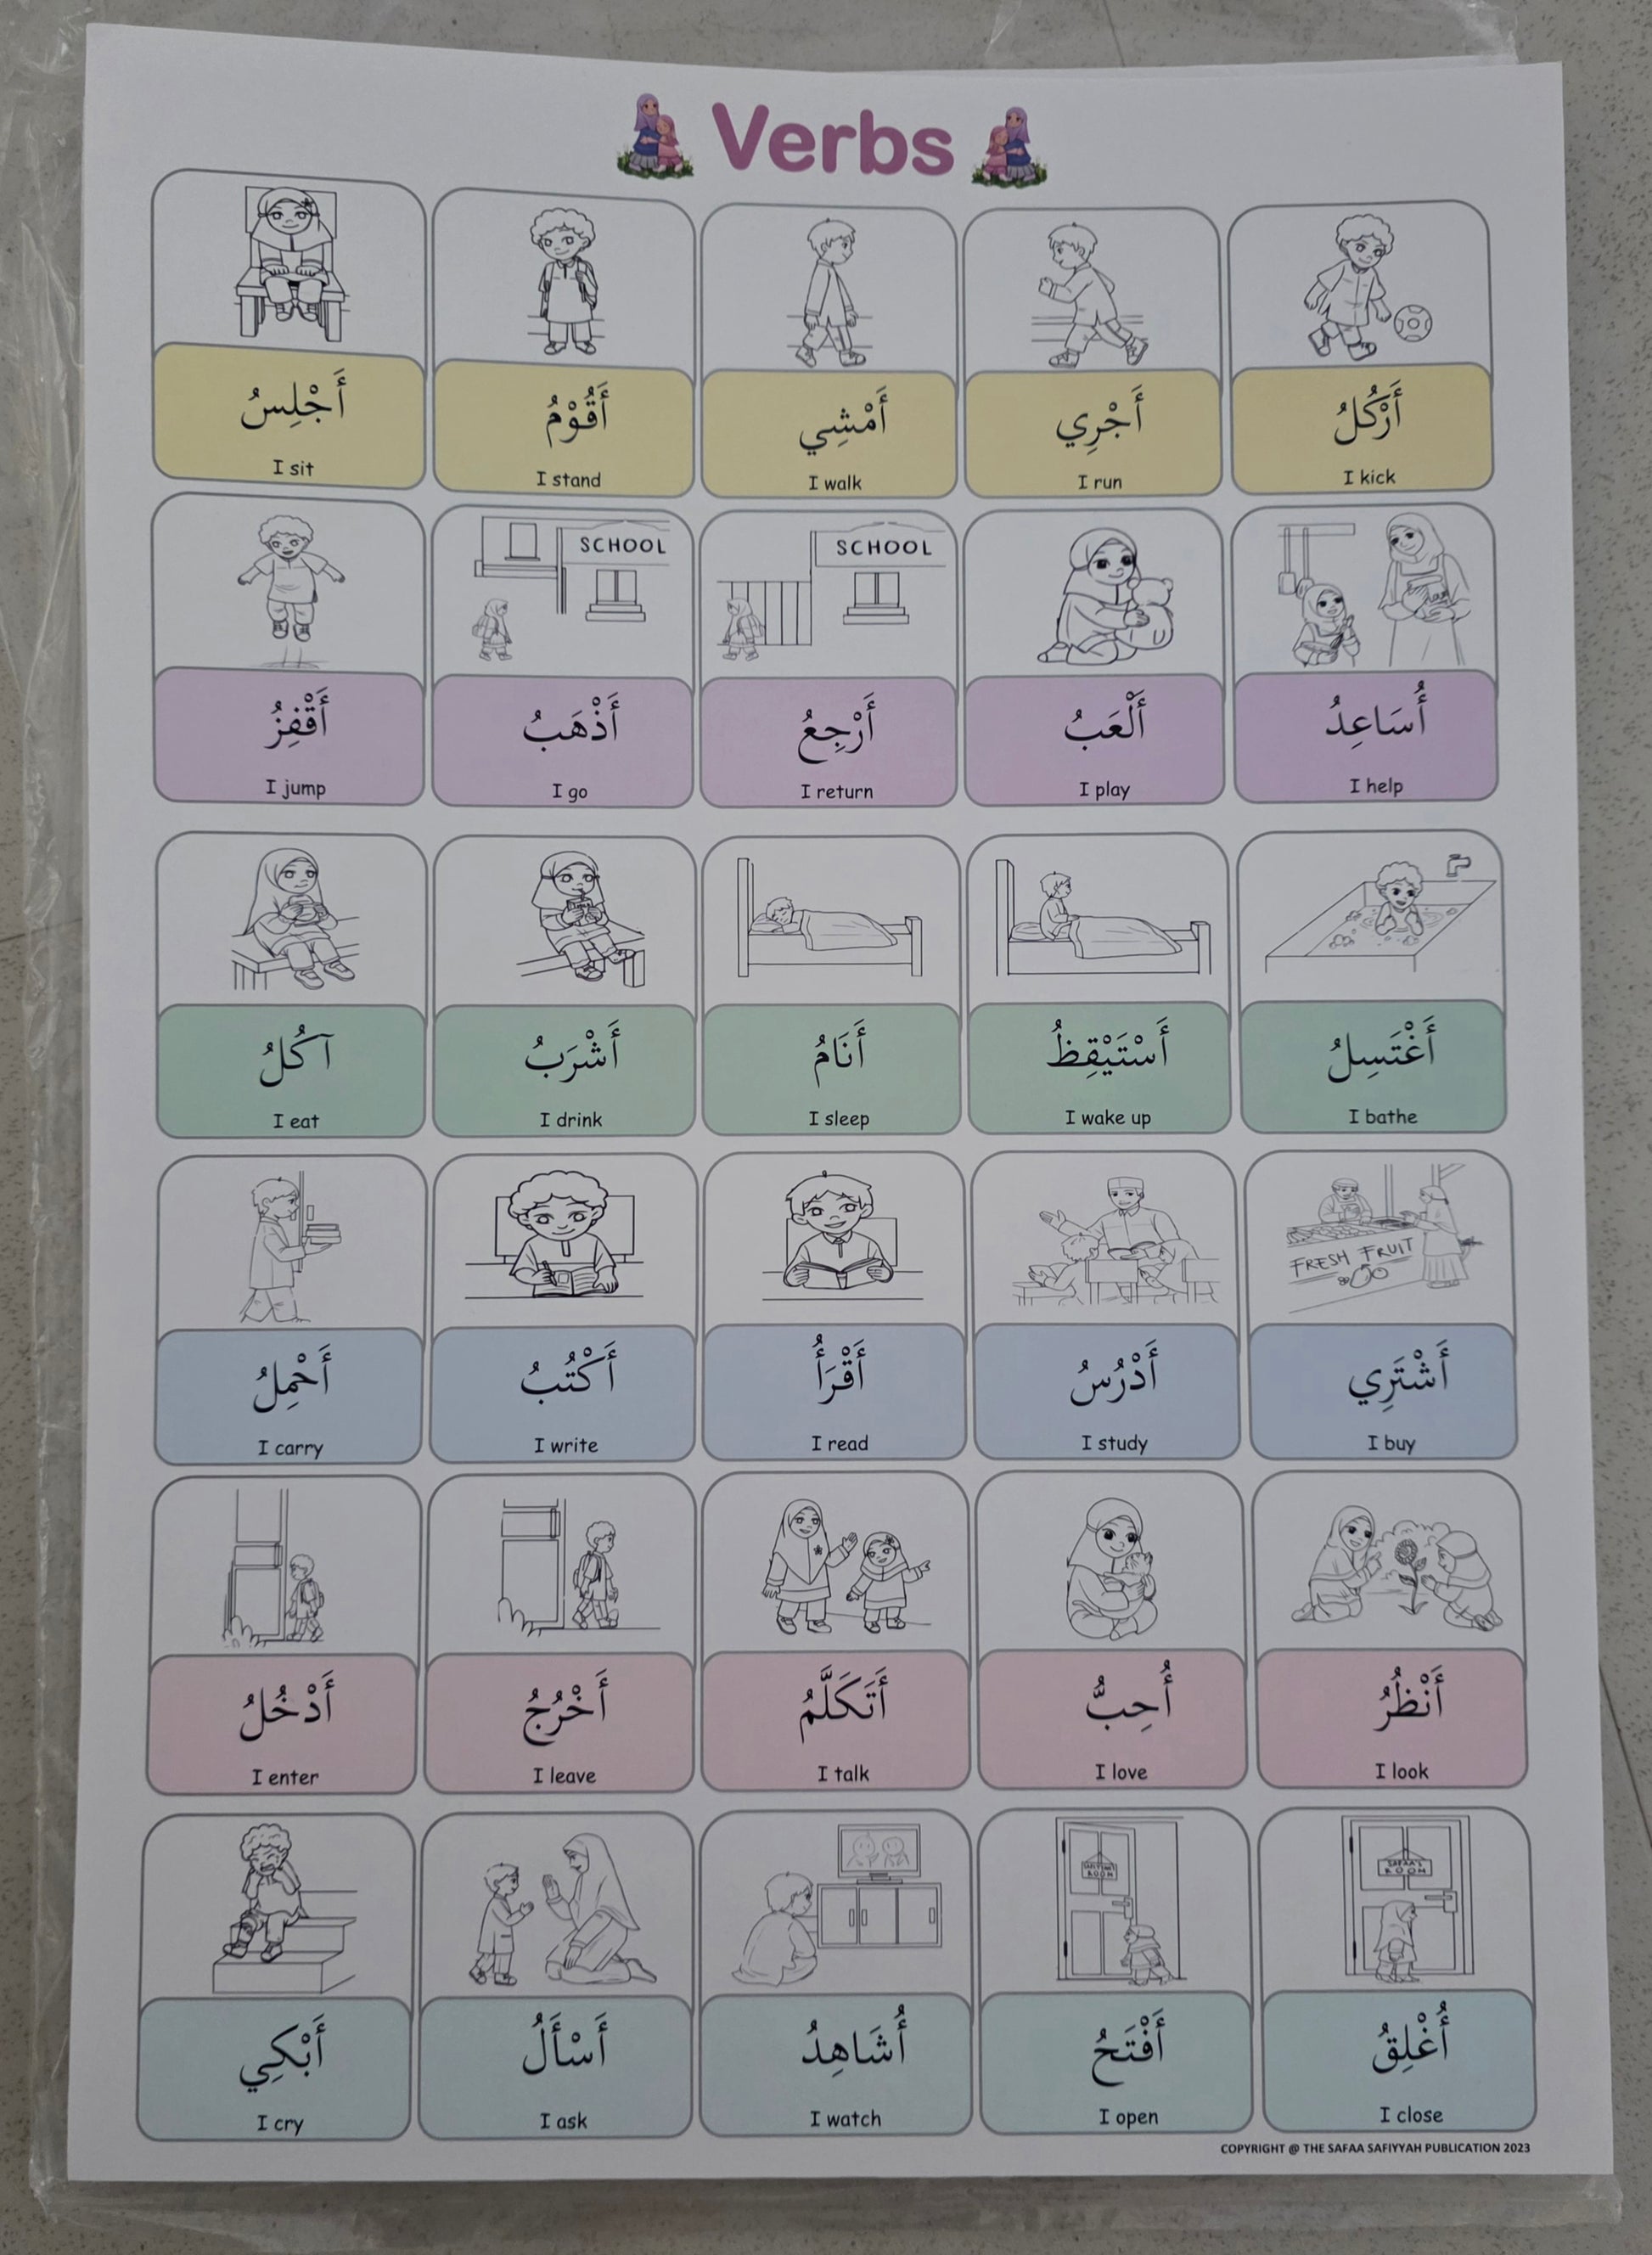 Verbs
أَجْلِسُ
I sit
أَقُوْمُ
I stand
أَمْشِي
I walk
أَجْرِي
I run
أَرْكُلُ
I kick
أَقْفِزُ
I jump
SCHOOL
أَذْهَبُ
I go
SCHOOL
أَرْجِعُ
I return
أَلْعَبُ
I play
أُسَاعِدُ
I help
آكُلُ
I eat
أَشْرَبُ
I drink
أَنَامُ
I sleep
أَسْتَيْقِظُ
I wake up
أَغْتَسِلُ
I bathe
أَحْمِلُ
I carry
أَكْتُبُ
I write
أَقْرَأُ
I read
أَدْرُسُ
I study
FRESH FRUIT
أَشْتَرِي
I buy
أَدْخُلُ
I enter
أَخْرُجُ
I leave
أَتَكَلَّمُ
I talk
أُحِبُّ
I love
أَنْظُرُ
I look
أَبْكِي
I cry
أَسْأَلُ
I ask
أُشَاهِدُ
I watch
ROOM
أَفْتَحُ
I open
SAFAA'S
ROOM
أُغْلِقُ
I close
COPYRIGHT @ THE SAFAA SAFIYYAH PUBLICATION 2023